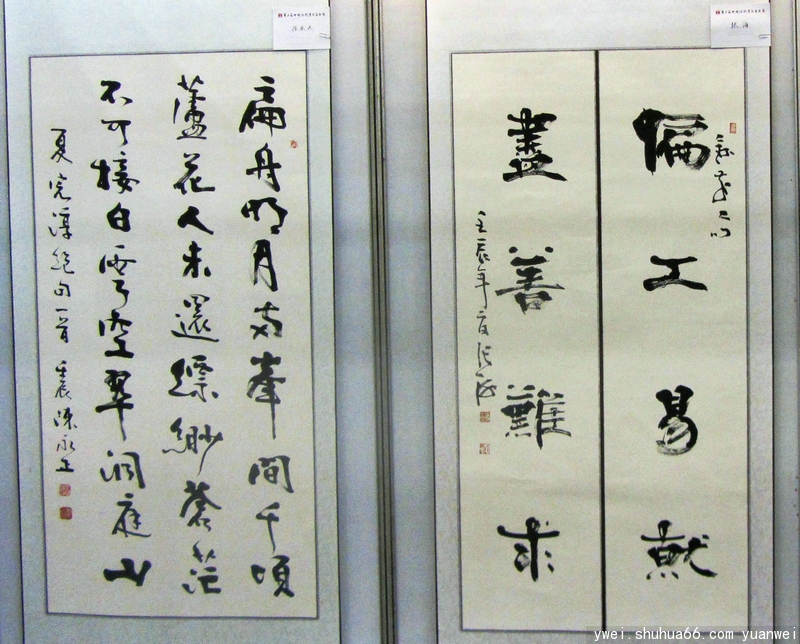 扁舟明月两峯間千頃
蘆花人未還縹緲蒼茫
不可接白雲空翠洞庭山
夏完淳絕句一首 壬辰陳永正
张海
偏工易就
盡善難求
壬辰年夏張海
ywei.shuhua66.com yuanwei